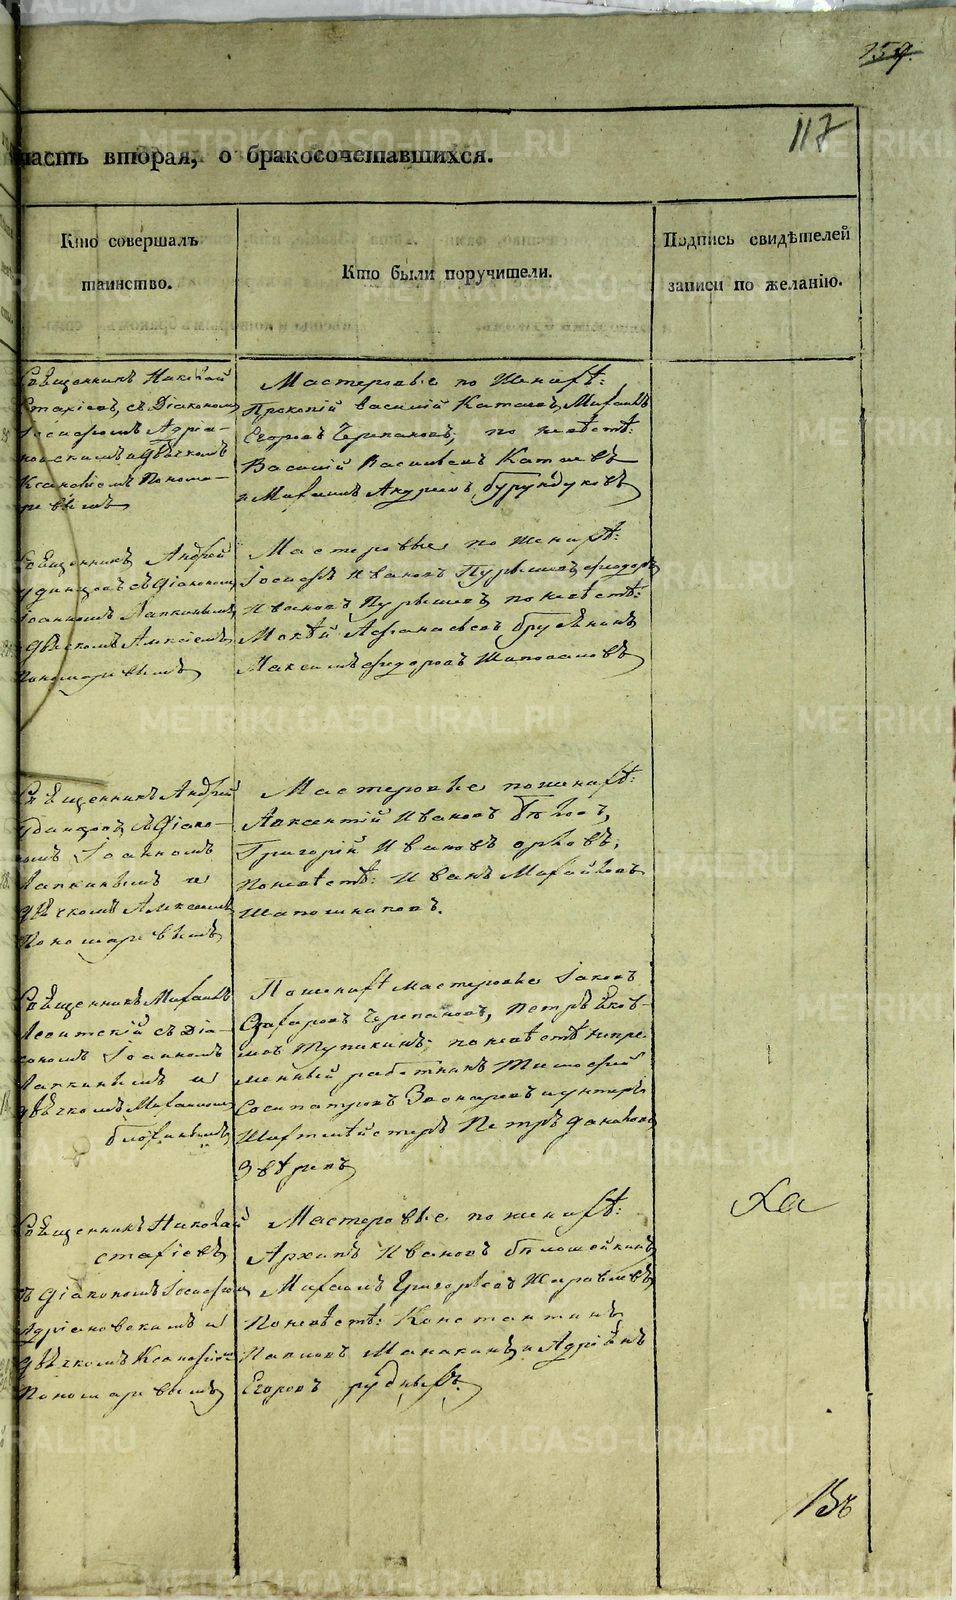 159.
117
часть вторая, о бракосочетавшихся.
Кто совершалъ
таинство.
Кто были поручители.
Подпись свидѣтелей
записи по желанію.
Священникъ Николай
Стахіевъ, съ Діакономъ
Іосифомъ Адріа-
новскимъ и дьячкомъ
Ксенофонтомъ Понома-
ревымъ
Мастеровые по женихѣ:
Прокопій Василій Катаевъ, Михаилъ
Егоровъ Черепановъ; по невѣстѣ:
Василій Васильевъ Катаевъ
и Михаилъ Андреевъ Бурундуковъ
Священникъ Андрей
Удинцовъ съ Діакономъ
Іоанномъ Лапкинымъ,
дьячкомъ Алексѣемъ
Пономаревымъ
Мастеровые по женихѣ:
Іосифъ Ивановъ Пурышевъ, Федоръ
Ивановъ Пурышевъ, по невѣстѣ:
Мокѣй Афанасьевъ
Максимъ Федоровъ Шаповаловъ
Священникъ Андрей
Удинцовъ, съ Діако-
номъ Іоанномъ
Лапкинымъ и
дьячкомъ Алексѣемъ
Пономаревымъ
Мастеровые по женихѣ:
Авксентій Ивановъ Бѣловъ,
Григорій Ивановъ Орловъ,
по невѣстѣ: Иванъ Михайловъ
Шапошниковъ.
Священникъ Михаилъ
съ Діа-
кономъ Іоанномъ
Лапкинымъ и
дьячкомъ Михаиломъ
По женихѣ мастеровые Іаковъ
Черепановъ, Петръ
Тупикинъ; по невѣстѣ непре-
менный работникъ Тимофей
Сосипатровъ и унтеръ
Шихтмейстеръ Петръ Даниловъ
Звѣревъ
Священникъ Николай
Стахіевъ
съ Діакономъ Іосифомъ
Адріановскимъ и
дьячкомъ Ксенофонтомъ
Пономаревымъ
Мастеровые по женихѣ:
Архипъ Ивановъ Бѣлошейкинъ
Михаилъ Григорьевъ Журавлевъ,
по невѣстѣ: Константинъ
Павловъ Манакинъ, и Адріанъ
Егоровъ Рудныхъ.
Ха
METRIKI.GASO-URAL.RU